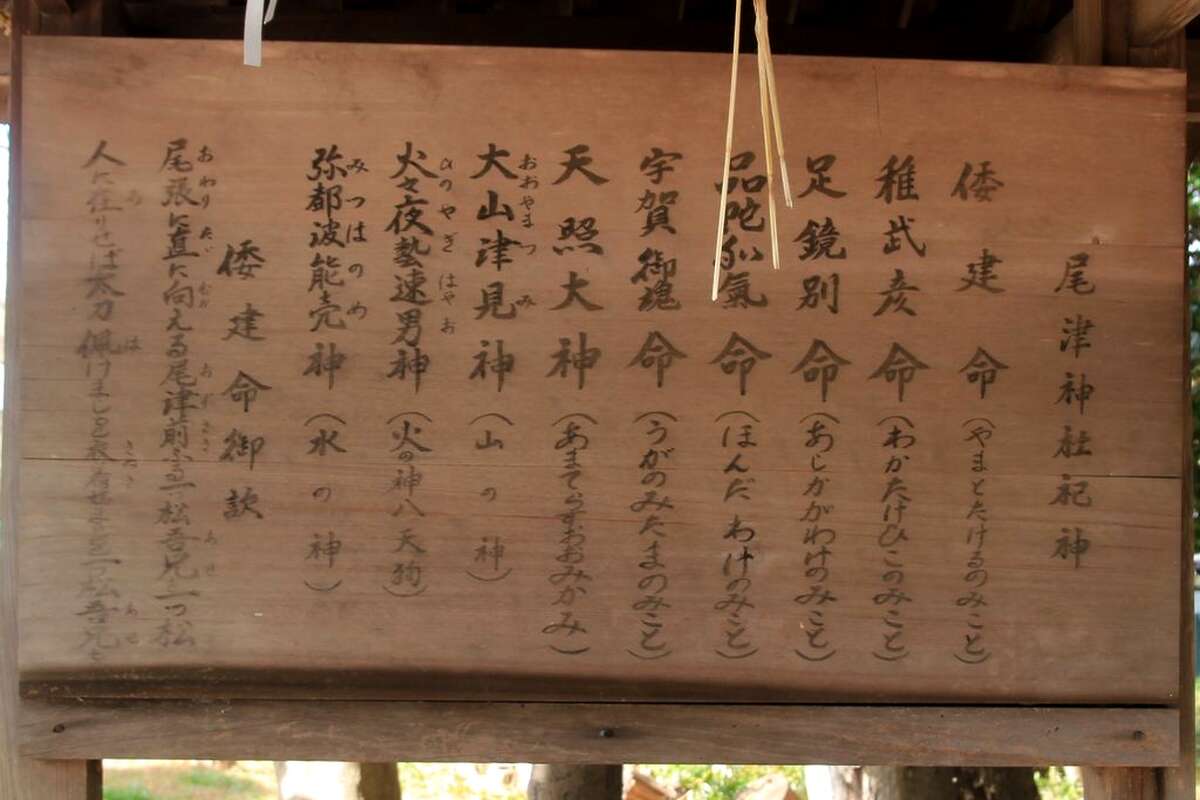 尾津神社祀神
倭建命(やまとたけるのみこと)
稚武彦命(わかたけひこのみこと)
足鏡別命(あしかがわけのみこと)
品陀和氣命(ほんだわけのみこと)
宇賀御魂命(うがのみたまのみこと)
天照大神(あまてらすおおみかみ)
大山津見神(山の神)
おおやまつみ
火之夜藝速男神(火の神八天狗)
ひのやぎはやお
弥都波能売神(水の神)
みつはのめ
倭建命御歌
尾張に直に向える尾津前なる一つ松吾兄を一つ松
おわり ただ むか おずさき あせ
人に在りせば太刀佩けましを衣着せましを一つ松吾兄を
あ は きぬき あせ